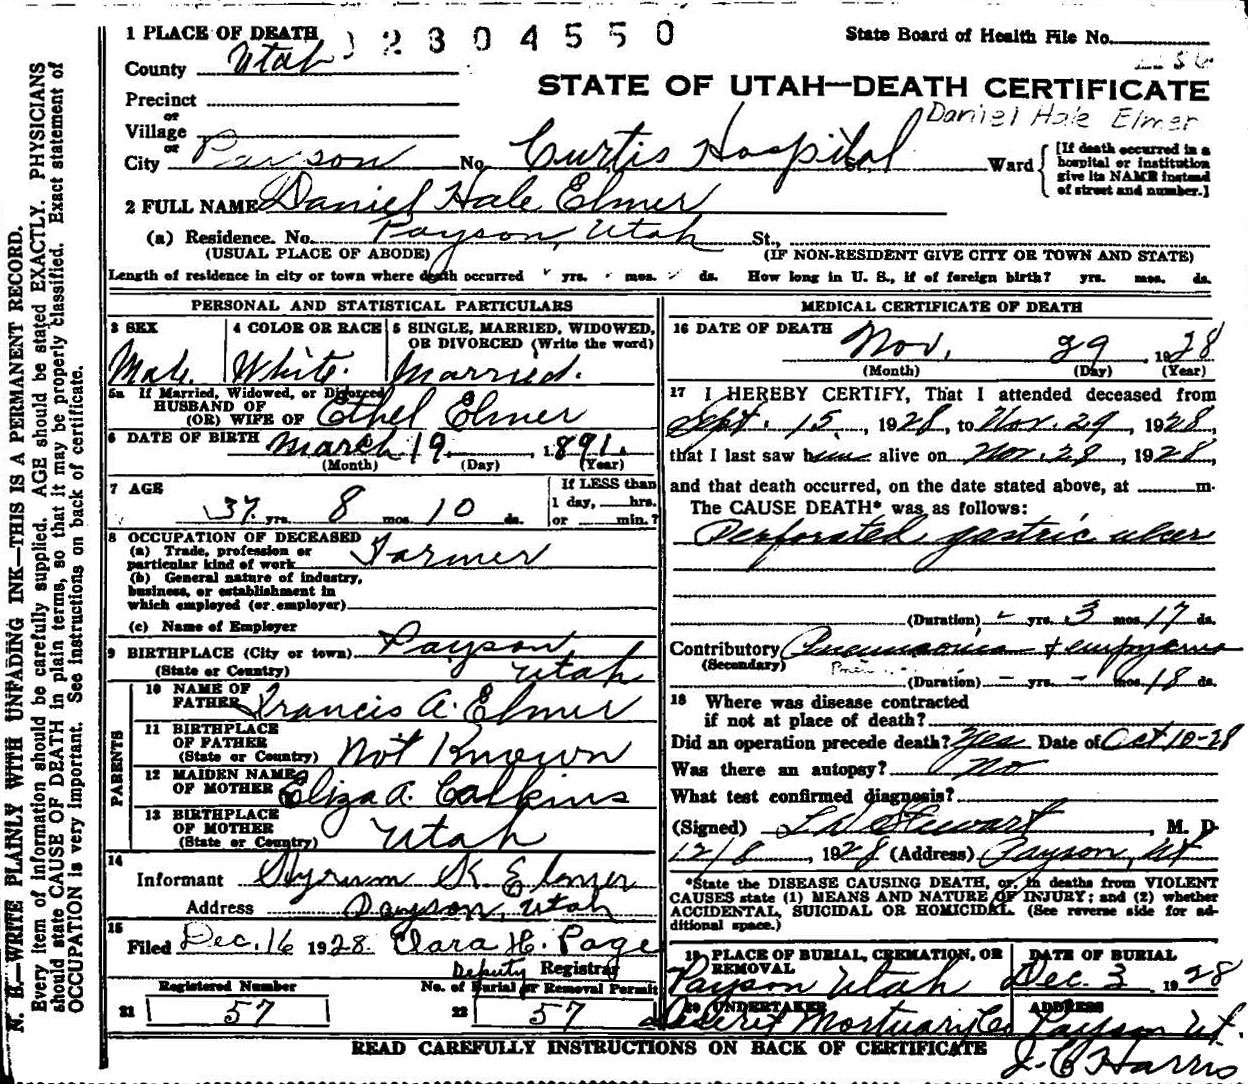 1 PLACE OF DEATH 2304550 State Board of Health File No.
County Utah
STATE OF UTAH—DEATH CERTIFICATE
Precinct
or
Village
Daniel Hale Elmer
or
City Payson No. Curtis Hospital St., Ward [If death occurred in a hospital or institution give its NAME instead of street and number.]
2 FULL NAME Daniel Hale Elmer
(a) Residence. No. Payson, Utah St.,
(USUAL PLACE OF ABODE) (IF NON-RESIDENT GIVE CITY OR TOWN AND STATE)
Length of residence in city or town where death occurred yrs. mos. ds. How long in U. S., if of foreign birth? yrs. mos. ds.
PERSONAL AND STATISTICAL PARTICULARS
3 SEX
Male.
4 COLOR OR RACE
White.
5 SINGLE, MARRIED, WIDOWED,
OR DIVORCED (Write the word)
Married.
5a If Married, Widowed, or Divorced
HUSBAND OF
(OR) WIFE OF Ethel Elmer
6 DATE OF BIRTH March 19, 1891.
(Month) (Day) (Year)
7 AGE
37 yrs. 8 mos. 10 ds.
If LESS than
1 day, hrs.
or min.?
8 OCCUPATION OF DECEASED
(a) Trade, profession or
particular kind of work Farmer
(b) General nature of industry,
business, or establishment in
which employed (or employer)
(c) Name of Employer
9 BIRTHPLACE (City or town) Payson
(State or Country) Utah
PARENTS
10 NAME OF
FATHER Francis A. Elmer
11 BIRTHPLACE
OF FATHER
(State or Country) Not Known
12 MAIDEN NAME
OF MOTHER Eliza A. Calkins
13 BIRTHPLACE
OF MOTHER
(State or Country) Utah
14
Informant Hyrum K Elmer
Address Payson, Utah
15
Filed Dec. 16 1928. Clara H. Page
Deputy Registrar
Registered Number No. of Burial or Removal Permit
21 57 22 57
MEDICAL CERTIFICATE OF DEATH
16 DATE OF DEATH Nov. 29, 1928
(Month) (Day) (Year)
17 I HEREBY CERTIFY, That I attended deceased from
Sept. 15, 1928, to Nov. 29, 1928,
that I last saw him alive on Nov. 29, 1928,
and that death occurred, on the date stated above, at m.
The CAUSE DEATH* was as follows:
Perforated gastric ulcer
(Duration) – yrs. 3 mos. 17 ds.
Contributory Pneumonia + empyema
(Secondary)
(Duration) – yrs. – mos. 18 ds.
18 Where was disease contracted
if not at place of death?
Did an operation precede death? Yes Date of Oct 10-28
Was there an autopsy? No
What test confirmed diagnosis?
(Signed) L D Stewart, M. D.
12/8, 1928 (Address) Payson, Ut
*State the DISEASE CAUSING DEATH, or, in deaths from VIOLENT
CAUSES state (1) MEANS AND NATURE OF INJURY; and (2) whether
ACCIDENTAL, SUICIDAL OR HOMICIDAL. (See reverse side for ad-
ditional space.)
19 PLACE OF BURIAL, CREMATION, OR
REMOVAL
Payson Utah
DATE OF BURIAL
Dec. 3 1928
20 UNDERTAKER
Deseret Mortuary Co
ADDRESS
Payson Ut.
J. C Harris
READ CAREFULLY INSTRUCTIONS ON BACK OF CERTIFICATE
N. B.—WRITE PLAINLY WITH UNFADING INK—THIS IS A PERMANENT RECORD.
Every item of information should be carefully supplied. AGE should be stated EXACTLY. PHYSICIANS
should state CAUSE OF DEATH in plain terms, so that it may be properly classified. Exact statement of
OCCUPATION is very important. See instructions on back of certificate.